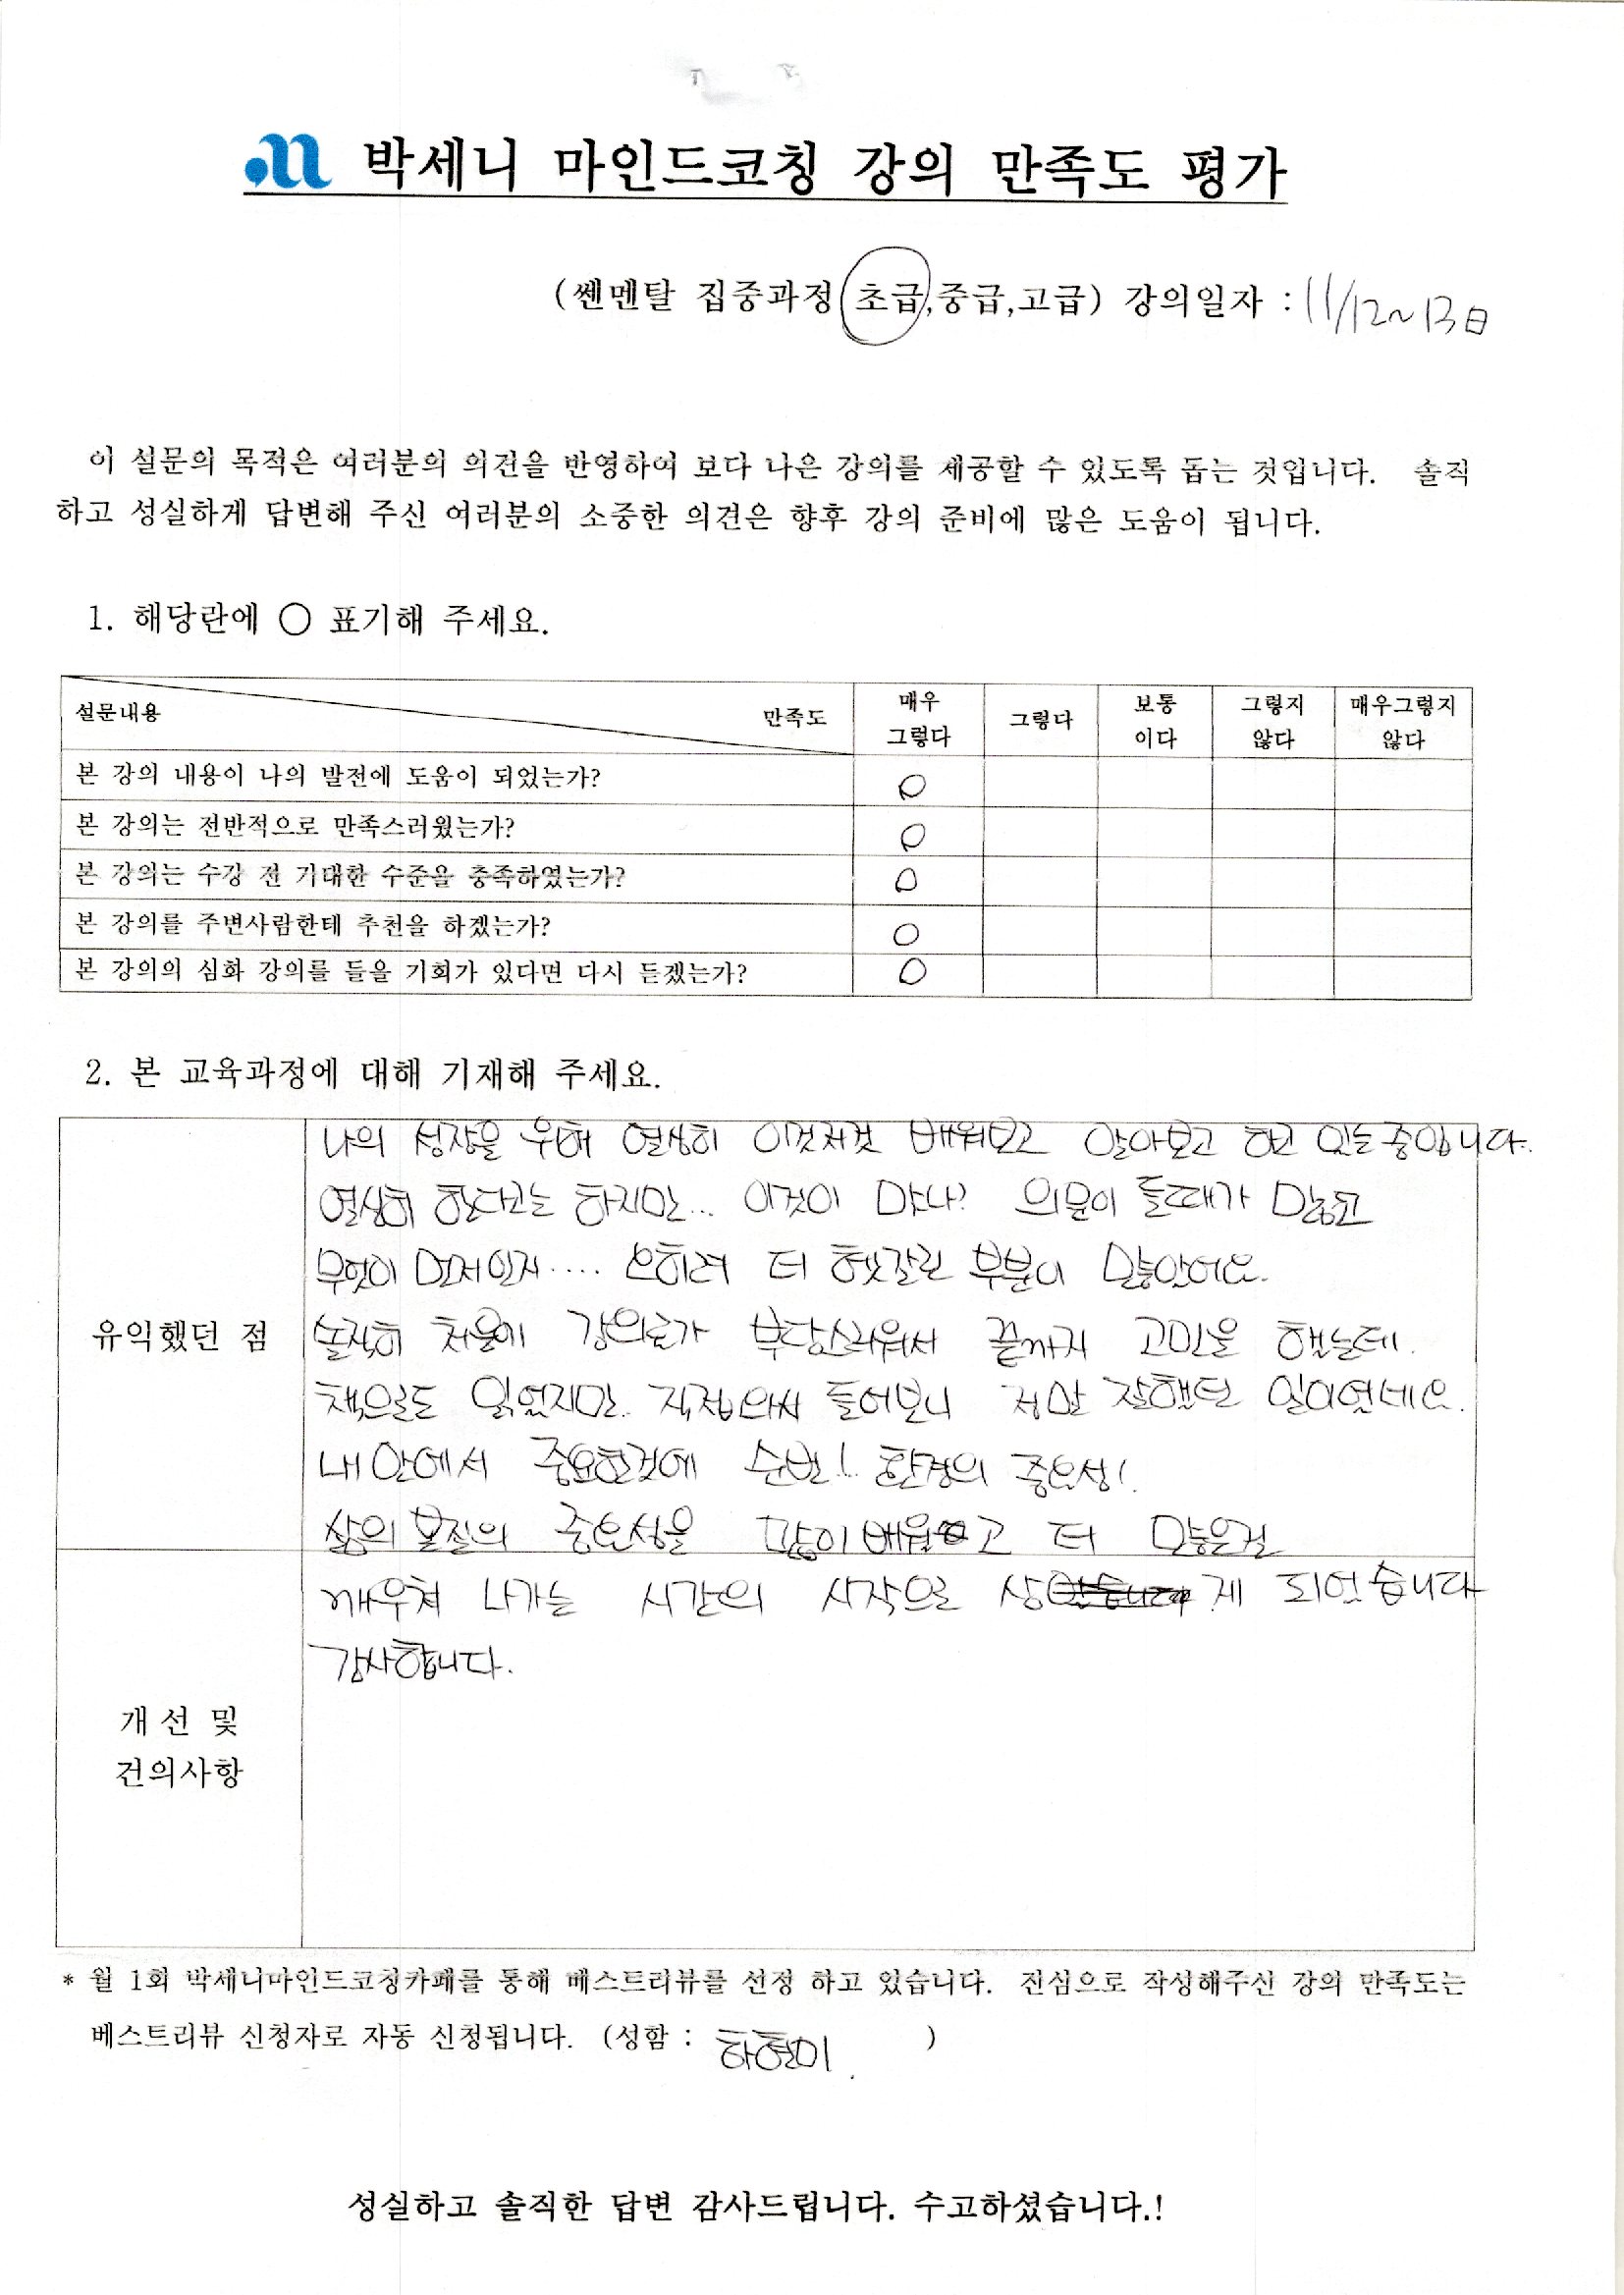 박세니 마인드코칭 강의 만족도 평가
(쎈멘탈 집중과정 초급,중급,고급) 강의일자 : 11/12~13日
이 설문의 목적은 여러분의 의견을 반영하여 보다 나은 강의를 제공할 수 있도록 돕는 것입니다. 솔직
하고 성실하게 답변해 주신 여러분의 소중한 의견은 향후 강의 준비에 많은 도움이 됩니다.
1. 해당란에 ○ 표기해 주세요.
설문내용 만족도 매우 그렇다 그렇다 보통 이다 그렇지 않다 매우그렇지 않다
본 강의 내용이 나의 발전에 도움이 되었는가? ○
본 강의는 전반적으로 만족스러웠는가? ○
본 강의는 수강 전 기대한 수준을 충족하였는가? ○
본 강의를 주변사람한테 추천을 하겠는가? ○
본 강의의 심화 강의를 들을 기회가 있다면 다시 듣겠는가? ○
2. 본 교육과정에 대해 기재해 주세요.
유익했던 점
나의 성장을 위해 열심히 이것저것 배워보고 알아보고 하고 있는 중입니다.
열심히 한다고는 하지만... 이것이 맞나? 의문이 들때가 많고
무엇이 먼저인지.... 오히려 더 헷갈린 부분이 많았어요.
솔직히 처음에 강의료가 부담스러워서 끝까지 고민을 했는데.
책으로도 읽었지만. 직접와서 들어보니 정말 잘했던 일이였네요.
내 안에서 중요한것에 순번! 환경의 중요성!
삶의 본질의 중요성을 많이 배우고 더 많은걸
깨우쳐 나가는 시간의 시작으로 게 되었습니다
감사합니다.
개선 및
건의사항
* 월 1회 박세니마인드코칭카페를 통해 베스트리뷰를 선정 하고 있습니다. 진심으로 작성해주신 강의 만족도는
베스트리뷰 신청자로 자동 신청됩니다. (성함 : 하현미 )
성실하고 솔직한 답변 감사드립니다. 수고하셨습니다.!